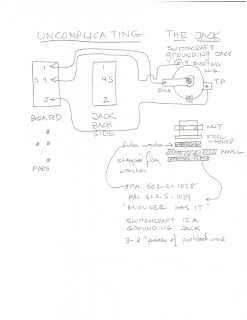 UNCOMPLICATING THE JACK
SWITCHCRAFT
GROUNDING JACK
SHORTING
LUG
RING
TIP
1
5 4
2
1
4 5
2
BOARD
JACK
BACK
SIDE
PADS
NUT
STEEL
WASHER
fiber washer
PANEL
stepped fiber
washer
P/N S02-S-1028
P/N S02-S-1029
"MOUSER HAS IT"
SWITCHCRAFT 12A
GROUNDING JACK
3-2" pieces of pushback wire